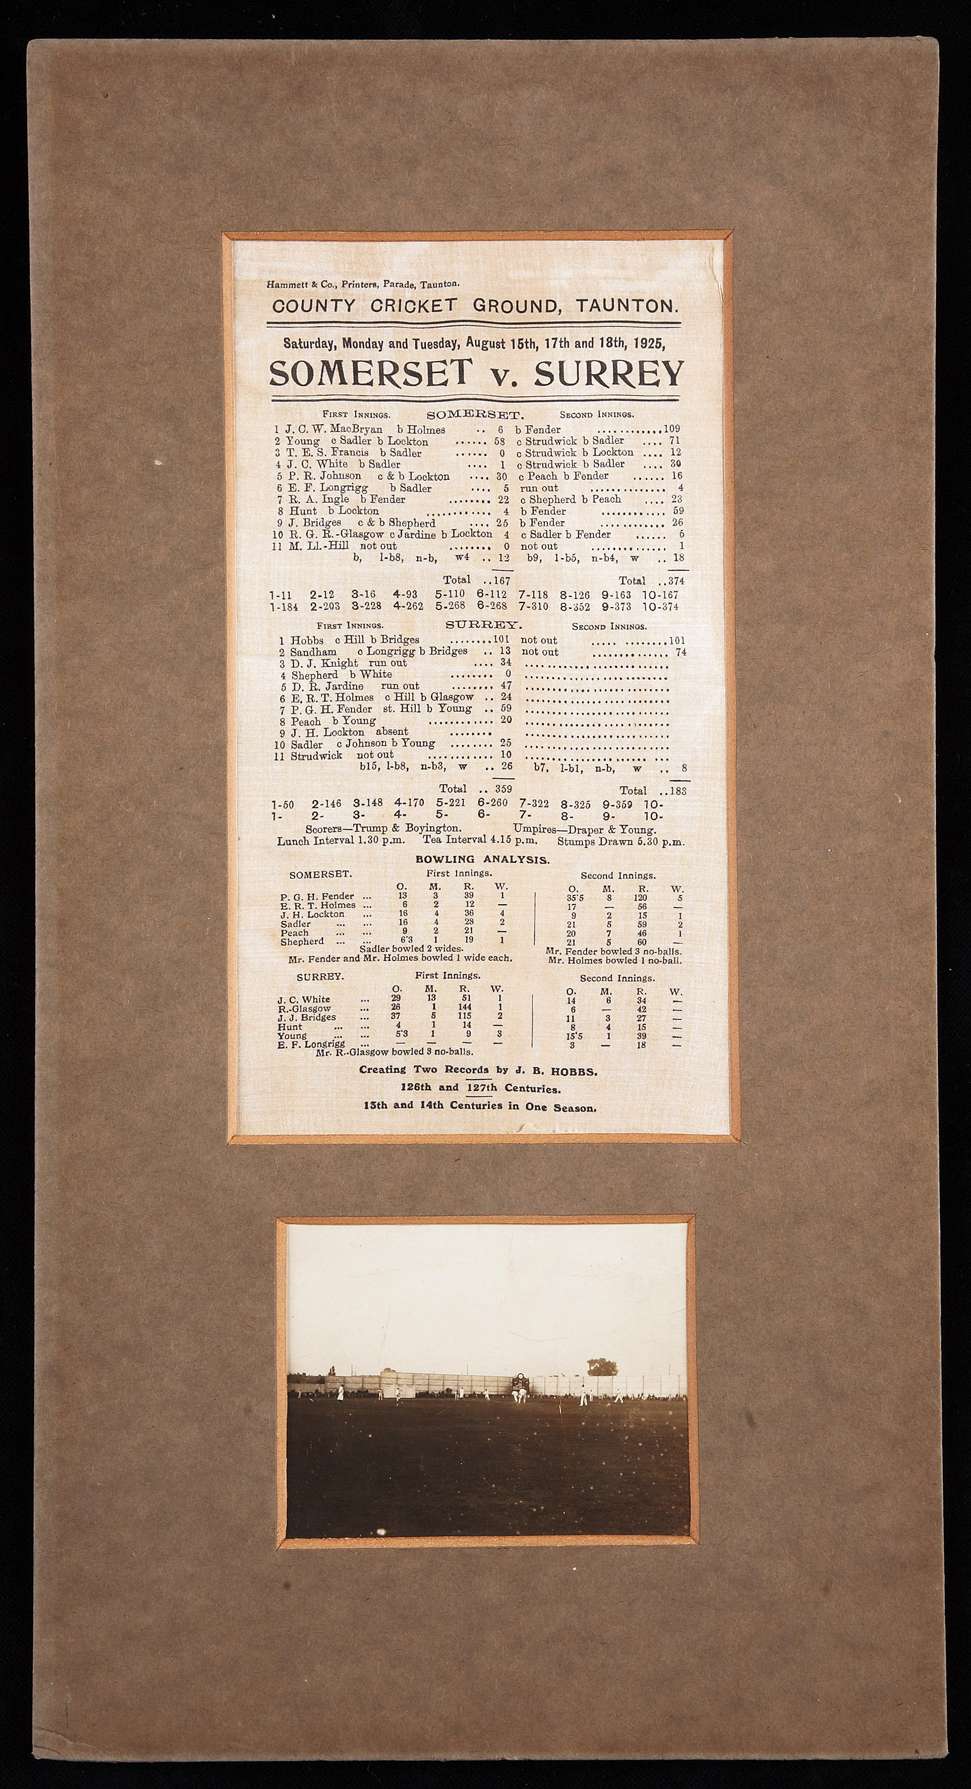 Hammett & Co., Printers, Parade, Taunton.
COUNTY CRICKET GROUND, TAUNTON.
Saturday, Monday and Tuesday, August 15th, 17th and 18th, 1925,
SOMERSET v. SURREY
FIRST INNINGS. SOMERSET. SECOND INNINGS.
1 J. C. W. MacBryan b Holmes .. 6 b Fender ............109
2 Young c Sadler b Lockton ...... 58 c Strudwick b Sadler .... 71
3 T. E. S. Francis b Sadler ...... 0 c Strudwick b Lockton .... 12
4 J. C. White b Sadler .... 1 c Strudwick b Sadler .... 30
5 P. R. Johnson c & b Lockton .... 30 c Peach b Fender ...... 16
6 E. F. Longrigg b Sadler .... 5 run out ............. 4
7 R. A. Ingle b Fender ........ 22 c Shepherd b Peach .... 23
8 Hunt b Lockton ............ 4 b Fender ............ 59
9 J. Bridges c & b Shepherd .... 25 b Fender ............ 26
10 R. G. R.-Glasgow c Jardine b Lockton 4 c Sadler b Fender ...... 5
11 M. Ll.-Hill not out ........ 0 not out .............. 1
b, l-b8, n-b, w4 .. 12 b9, l-b5, n-b4, w .. 18
Total ..167 Total ..374
1-11 2-12 3-16 4-93 5-110 6-112 7-118 8-126 9-163 10-167
1-184 2-203 3-228 4-262 5-268 6-268 7-310 8-352 9-373 10-374
FIRST INNINGS. SURREY. SECOND INNINGS.
1 Hobbs c Hill b Bridges ........101 not out ..... ........101
2 Sandham c Longrigg b Bridges .. 13 not out .............. 74
3 D. J. Knight run out .... 34 ..........................
4 Shepherd b White ........ 0 ..........................
5 D. R. Jardine run out ........ 47 ..........................
6 E. R. T. Holmes c Hill b Glasgow .. 24 ..........................
7 P. G. H. Fender st. Hill b Young .. 59 ..........................
8 Peach b Young ............ 20 ..........................
9 J. H. Lockton absent ........ ..........................
10 Sadler c Johnson b Young ........ 25 ..........................
11 Strudwick not out ............ 10 ..........................
b15, l-b8, n-b3, w .. 26 b7, l-b1, n-b, w .. 8
Total .. 359 Total ..183
1-50 2-146 3-148 4-170 5-221 6-260 7-322 8-325 9-359 10-
1- 2- 3- 4- 5- 6- 7- 8- 9- 10-
Scorers—Trump & Boyington. Umpires—Draper & Young.
Lunch Interval 1.30 p.m. Tea Interval 4.15 p.m. Stumps Drawn 5.30 p.m.
BOWLING ANALYSIS.
SOMERSET. First Innings. Second Innings.
O. M. R. W. O. M. R. W.
P. G. H. Fender ... 13 3 39 1 35'5 8 120 5
E. R. T. Holmes ... 6 2 12 — 17 — 56 —
J. H. Lockton ... 16 4 36 4 9 2 15 1
Sadler ... ... 16 4 28 2 21 5 59 2
Peach ... ... 9 2 21 — 20 7 46 1
Shepherd ... ... 6'3 1 19 1 21 5 60 —
Sadler bowled 2 wides. Mr. Fender bowled 3 no-balls.
Mr. Fender and Mr. Holmes bowled 1 wide each. Mr. Holmes bowled 1 no-ball.
SURREY. First Innings. Second Innings.
O. M. R. W. O. M. R. W.
J. C. White ... 29 13 51 1 14 6 34 —
R.-Glasgow ... 26 1 144 1 6 — 42 —
J. J. Bridges ... 37 5 115 2 11 3 27 —
Hunt ... ... 4 1 14 — 8 4 15 —
Young ... ... 5'3 1 9 3 15'5 1 39 —
E. F. Longrigg ... — — — — 3 — 18 —
Mr. R.-Glasgow bowled 3 no-balls.
Creating Two Records by J. B. HOBBS.
126th and 127th Centuries.
13th and 14th Centuries in One Season.